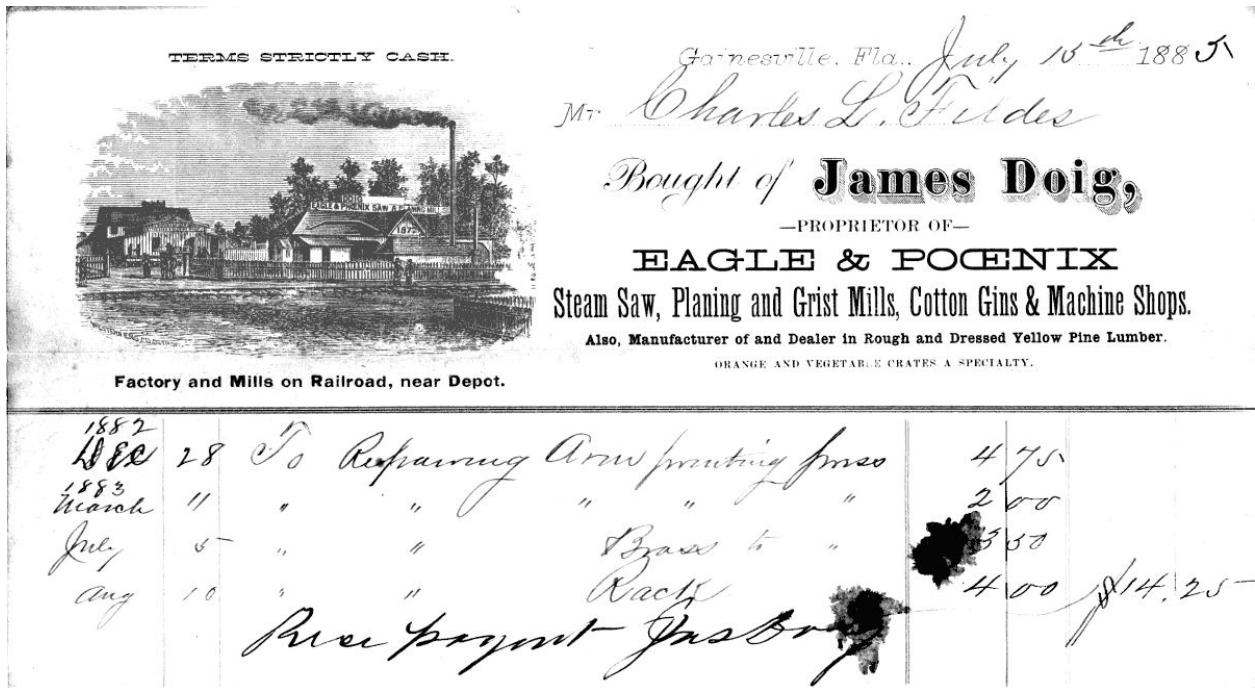 TERMS STRICTLY CASH.
EAGLE & PHOENIX SAW & PLANING MILLS
1872
Factory and Mills on Railroad, near Depot.
Gainesville, Fla., July 15th 1885
Mr Charles L. Fildes
Bought of James Doig,
—PROPRIETOR OF—
EAGLE & POŒNIX
Steam Saw, Planing and Grist Mills, Cotton Gins & Machine Shops.
Also, Manufacturer of and Dealer in Rough and Dressed Yellow Pine Lumber.
ORANGE AND VEGETABLE CRATES A SPECIALTY.
1882
Dec 28 To Repairing Arm printing press 4 75
1883
March 11 " " " " " 2 00
July 5 " " Brass to " 3 50
Aug 10 " " Rack 4 00 $14.25
Rece payent Jas Doig